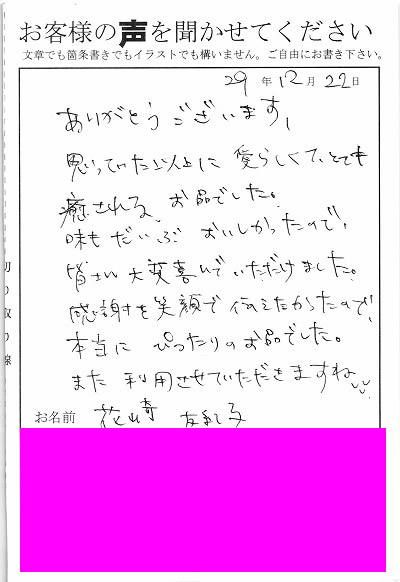 お客様の声を聞かせてください
文章でも箇条書きでもイラストでも構いません。ご自由にお書き下さい。
29 年 12 月 22 日
ありがとうございます。
思っていた以上に 愛らしくて、とても
癒される お品でした。
味も だいぶ おいしかったので、
皆さい 大変喜んで いただけました。
感謝を笑顔で 伝えたかったので、
本当に ぴったりの お品でした。
また 利用させていただきますね
お名前 花山奇
切り取り線